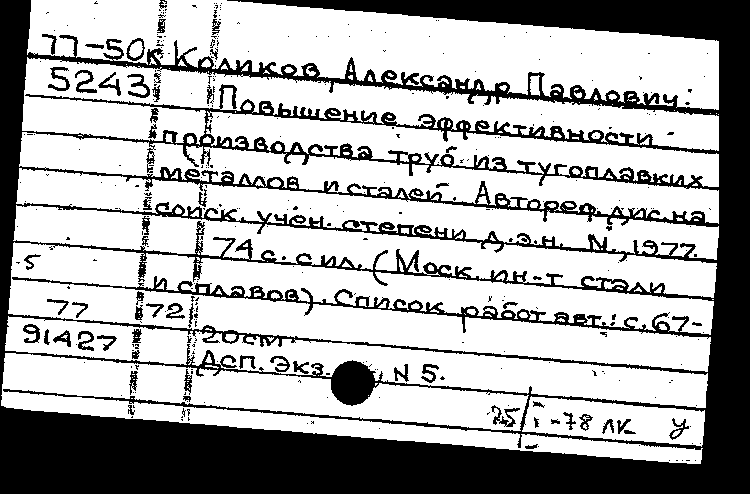 77-50к Коликов, Александр Павлович.
5243 Повышение эффективности
производства труб из тугоплавких
металлов и сталей. Автореф. дис. на
соиск. учен. степени д.э.н. М., 1977.
74 с. с ил. (Моск. ин-т стали
5
и сплавов). Список работ авт.: с. 67-
77 72
91427 20см.
Дсп. Экз. N 5.
25/I-78 лк У